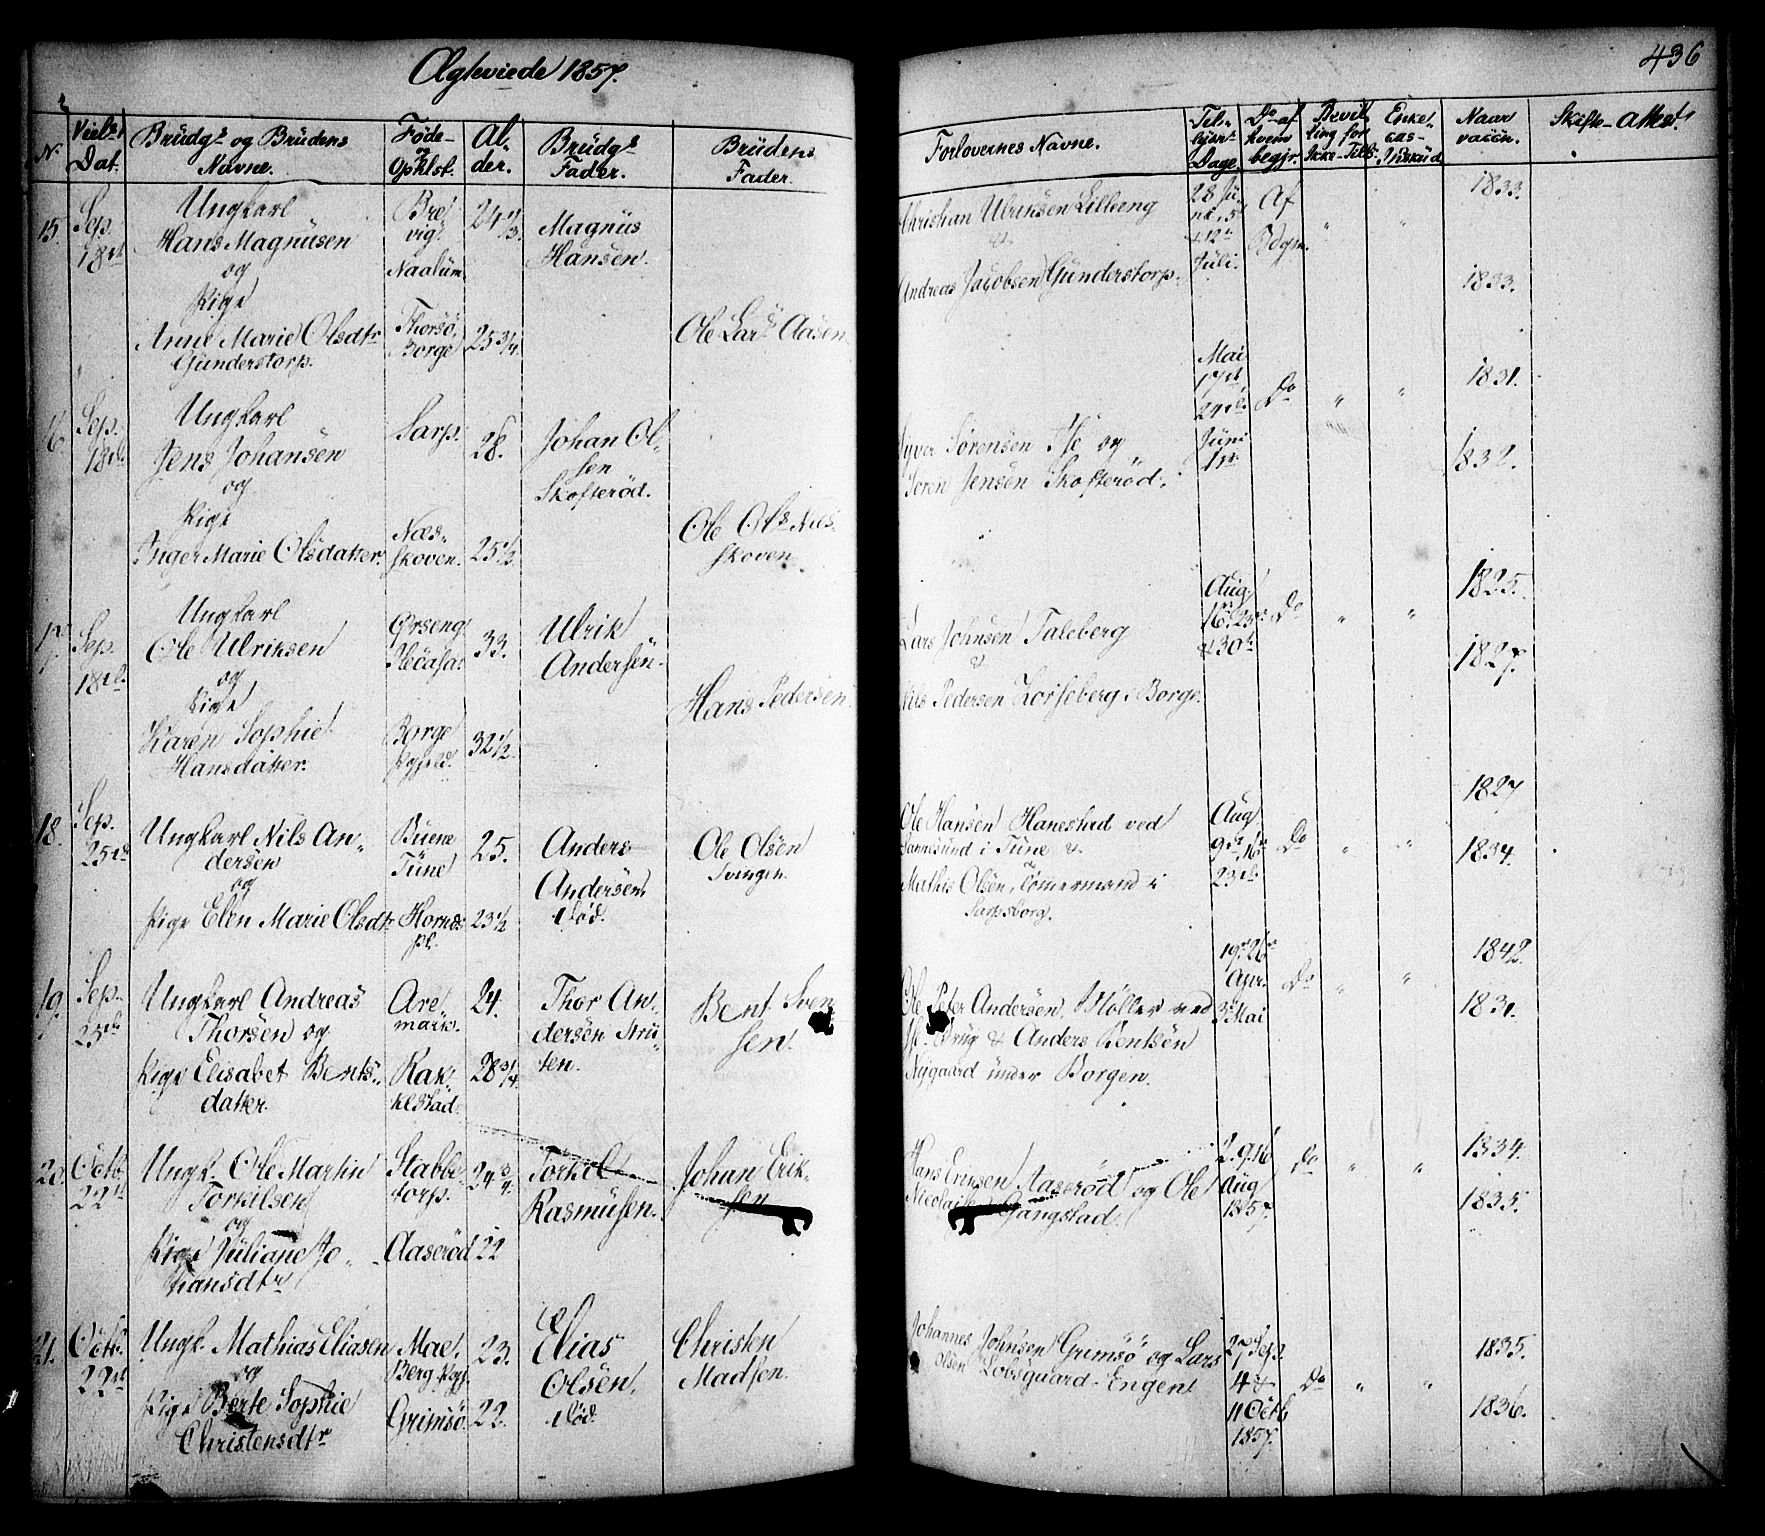 Ægteviede 1857.
436
N.
Viels
Dat.
Brüdgs og Brüdens
Navne.
Føde-
og
Opholst.
Al-
der.
Brüdgs
Fader.
Brüdens
Fader.
Forlovernes Navne.
Til-
Dage.
Do af
hvem
begjr.
Bevil
ling for
Enke-
cas-
Naar
vaccn.
Skifte-attest.
15.
Sep.
18de
Ungkarl
Hans Magnüsen
og
Pige
Anne Marie Olsdtr
Günderstorp.
Bre
vig.
Naalüm
Thorsö,
Borge
24 1/3.
25 3/4.
Magnüs
Hansen.
Ole Lars Aasen
Christian Ulriksen Lilleeng
&
Andreas Jacobsen Günderstorp.
28 Jü
ni, 5te
& 12te
Jüli.
Af
Bdgm.
"
"
1833.
1833.
16
Sep.
18de
Ungkarl
Jens Johansen
og
Pige
Inger Marie Olsdatter
Sarp.
Næs-
skoven.
28.
25 1/2.
Johan Ol-
sen
Skofteröd.
Ole Ols Næs-
skoven.
Syver Sørensen Ise og
Søren Jensen Skofteröd.
Mai
17de
24de
Jüni
1ste
Do
"
"
1831.
1832.
17
Sep.
18de
Ungkarl
Ole Ulriksen
og
Pige
Karen Sophie
Hansdatter.
Ørseng
Borge
33.
32 1/2.
Ulrik
Andersen.
Hans Pedersen.
Lars Johnsen Taleberg
&
Nils Pedersen Torseberg i Borge.
Aug
16de 23de
& 30te
Do
"
"
1825.
1827.
18.
Sep.
25de
Ungkarl Nils An-
dersen
og
Pige Elen Marie Olsdtr
Büene
Tüne
Hornæs
pl.
25.
23 1/2
Anders
Andersen,
död.
Ole Olsen
Svingen.
Ole Hansen Hanestad ved
Sannesund i Tüne &
Mathis Olsen, Tömmermand i
Sarpsborg.
Aug
9de, 16de
23de
Do
"
"
1827
1834.
19.
Sep.
25de
Ungkarl Andreas
Thorsen og
Pige Elisabet Bents-
datter.
Are
mark.
Rak-
kestad.
24.
28 3/4.
Thor An-
dersen Strü-
ten.
Bent Sven
sen.
Ole Peter Andersen, Møller ved
Ise-Brüg & Anders Bentsen
Nygaard ünder Borgen.
19de 26de
Apr.
3de Mai
Do
"
"
1842.
1831.
20.
Octb.
22de
Ungk. Ole Martin
Torkilsen
og
Pige Jüliane Jo-
hansdtr
Stabbe-
torp.
Aaseröd
24 3/4.
22
Torkil
Rasmüsen.
Johan Erik-
sen
Hans Eriksen Aaseröd og Ole
Gangstad.
2.9.16
Aug
1857.
Do
"
"
1834.
1835.
21.
Octb.
22de
Ungk. Mathias Eliasen
og
Pige Berte Sophie
Christensdtr
Grimsö.
23.
22.
Elias
Olsen,
död.
Christen
Madsen.
Johannes Johnsen Grimsö og Lars
Olsen Lobsgaard-Engen
27 Sep.
4 &
11 Octb
1857.
Do
"
"
1835.
1836.